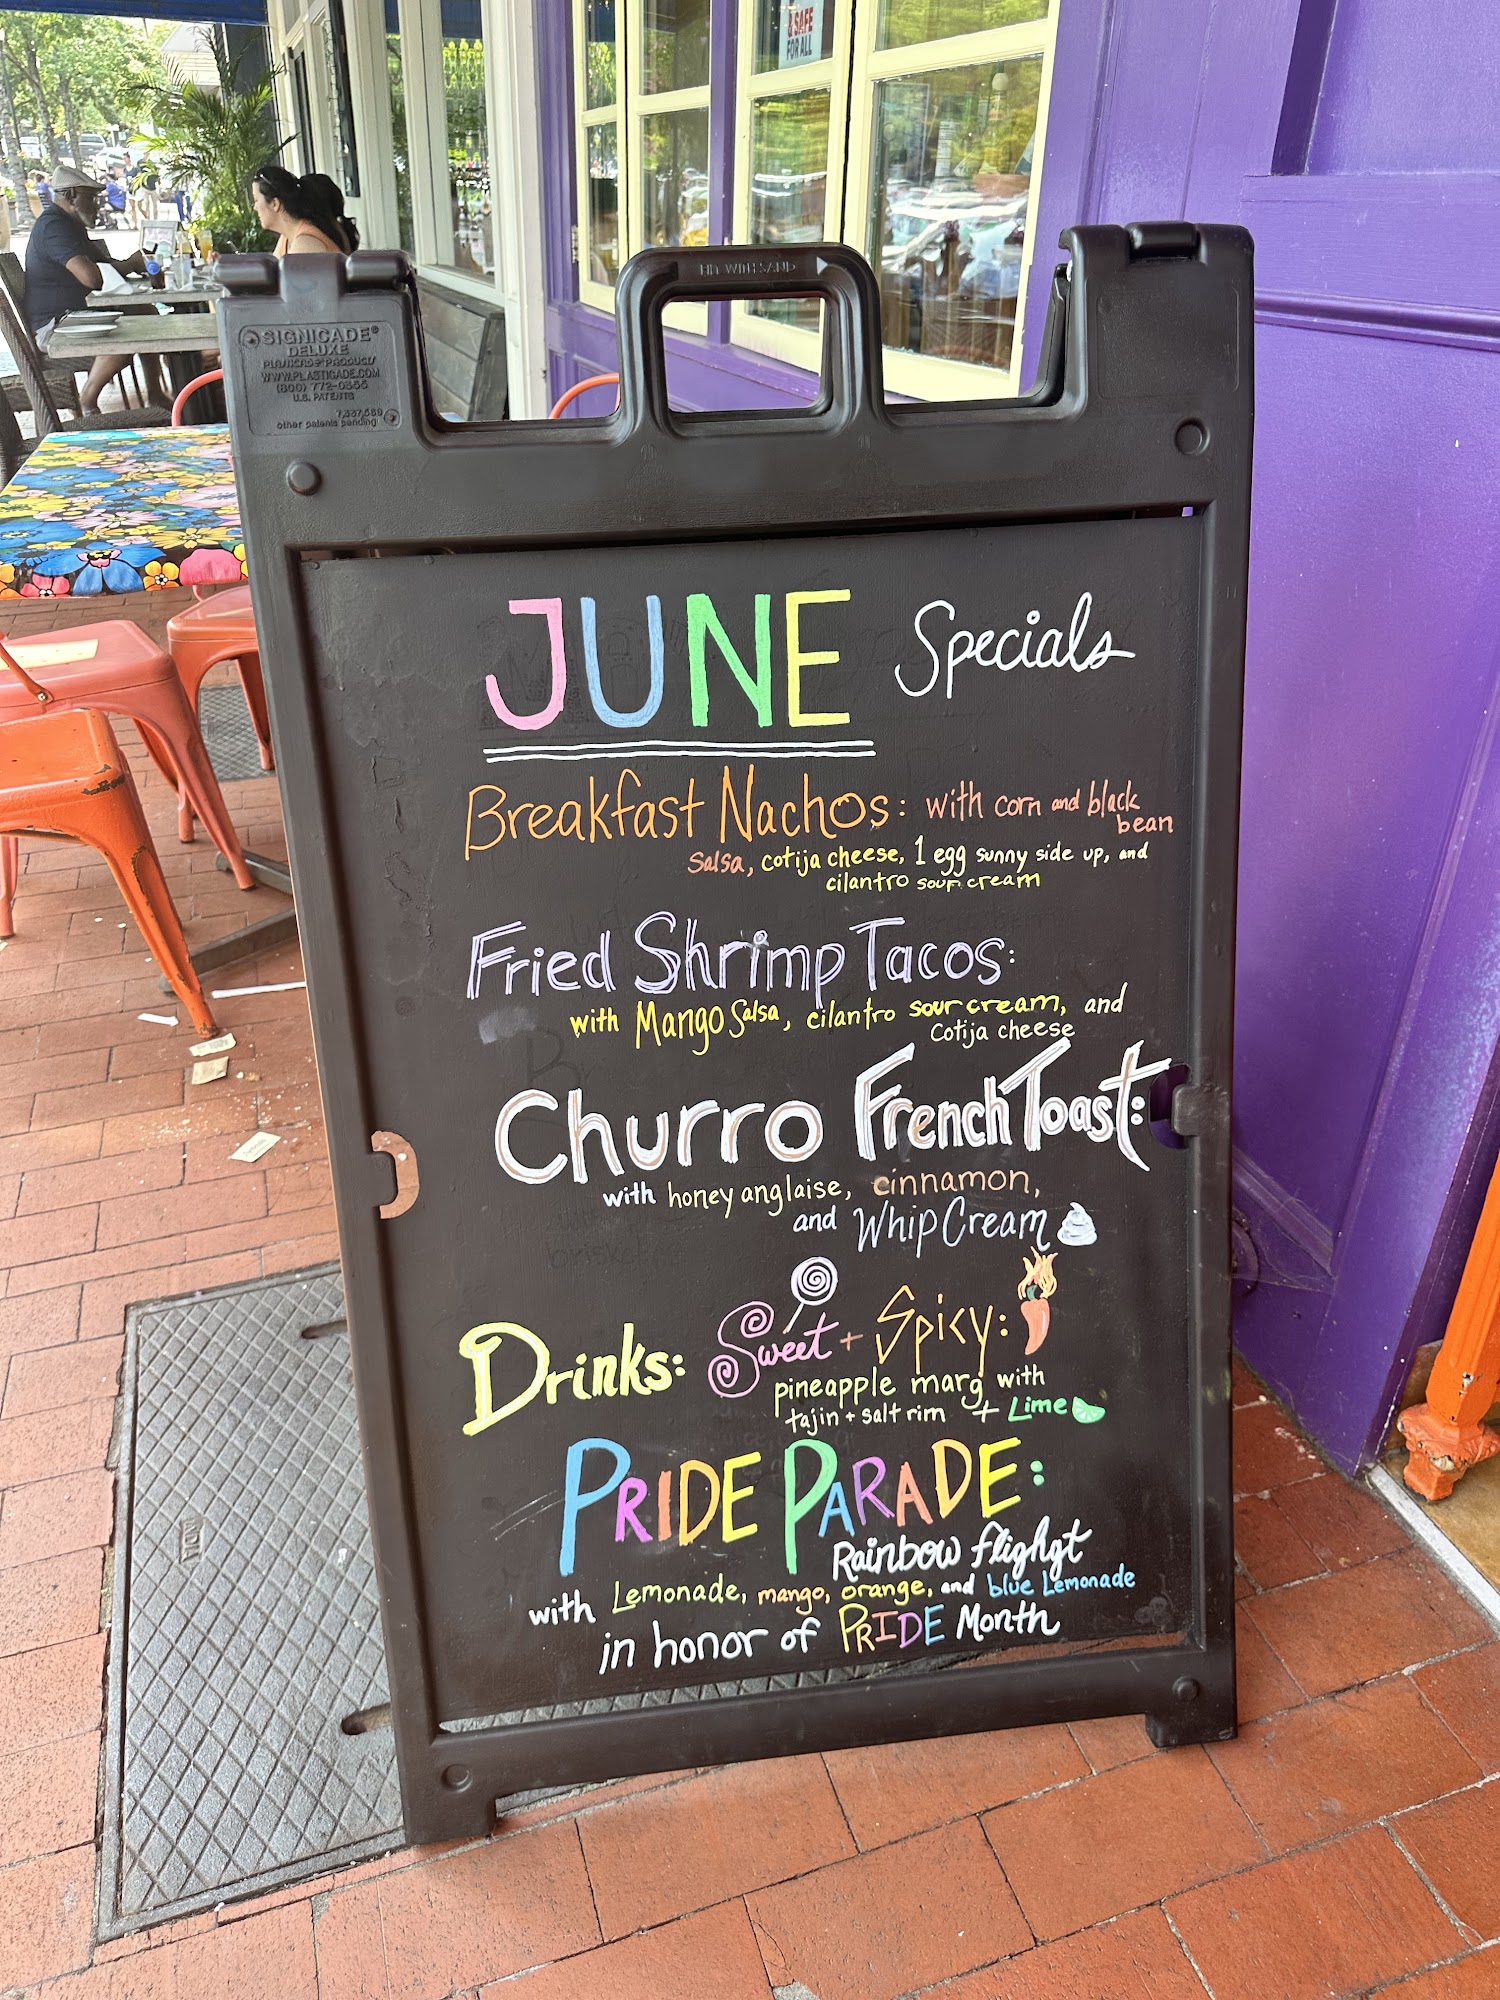 & SAFE
FOR ALL
SIGNICADE®
DELUXE
PLASTICADE PRODUCTS
WWW.PLASTICADE.COM
(800) 772-0355
U.S. PATENTS
7,337,569
other patents pending
JUNE Specials
Breakfast Nachos: with corn and black
bean
salsa, cotija cheese, 1 egg sunny side up, and
cilantro sour cream
Fried Shrimp Tacos:
with Mango Salsa, cilantro sour cream, and
Cotija cheese
Churro French Toast:
with honey anglaise, cinnamon,
and Whip Cream
Drinks: Sweet + Spicy:
pineapple marg with
tajin + salt rim + Lime
PRIDE PARADE:
Rainbow flighgt
with Lemonade, mango, orange, and blue Lemonade
in honor of PRIDE Month